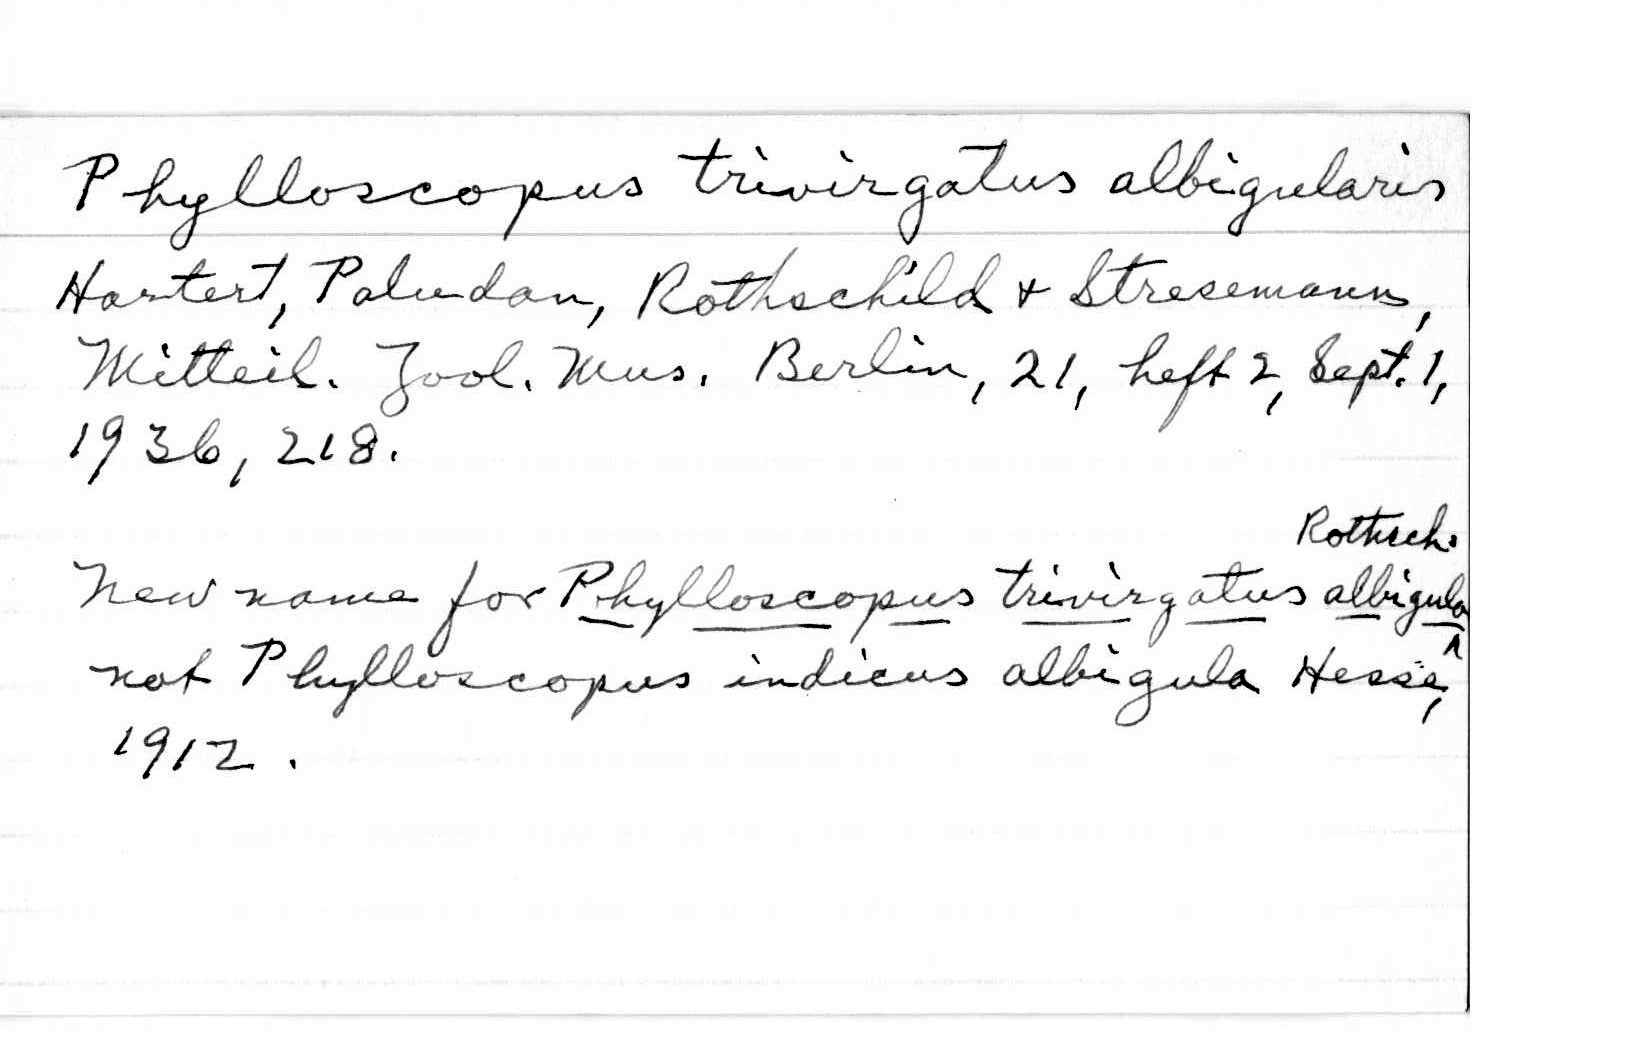 Phylloscopus trivirgatus albigularis
Hartert, Paludan, Rothschild + Stresemann,
Mitteil. Zool. Mus. Berlin, 21, heft 2, Sept. 1,
1936, 218.
Rothsch.
New name for Phylloscopus trivirgatus albigula ^
not Phylloscopus indicus albigula Hesse,
1912.